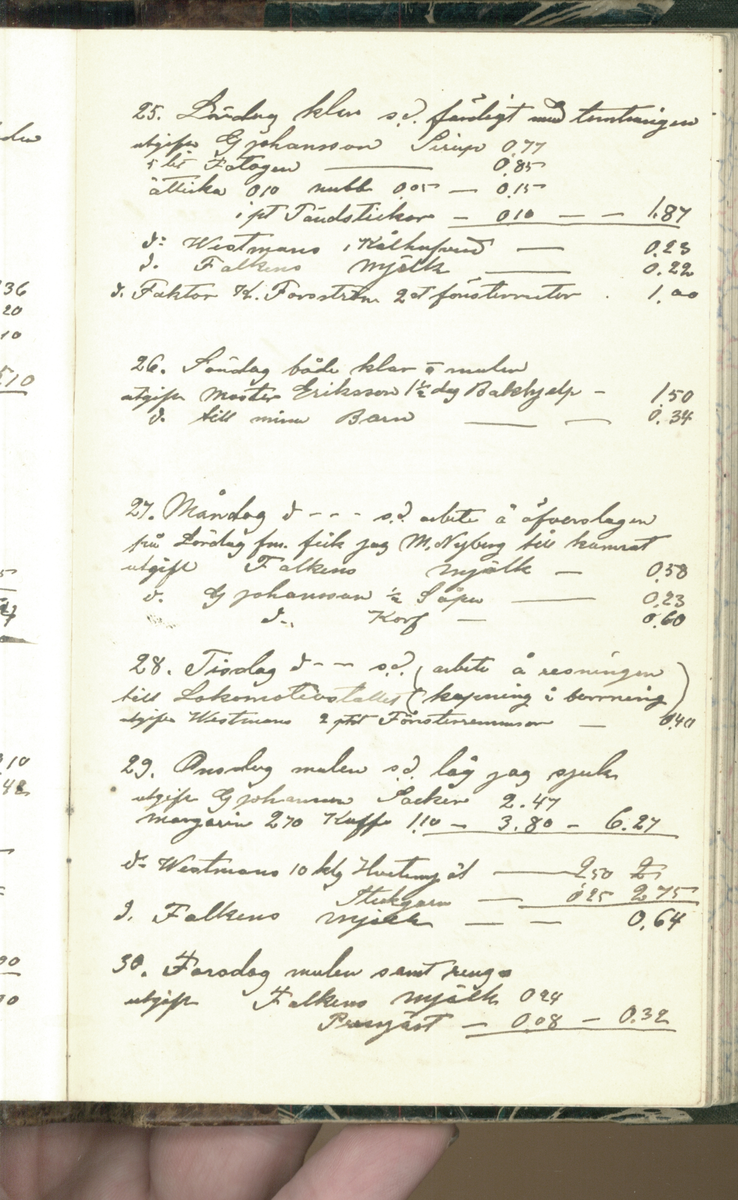 25. Lördag klar s.d. färdigt med
utgifter G Johansson Sirup 0,77
5 lit Fotogen 0,85
ätticka 0,10 nubb 0,05 — 0,15
1 pt Tändstickor — 0,10 — — 1.87
do Westmans 1 Kålhufvud — 0,23
d. Falkens Mjölk 0,22
d. Faktor K. Forsström 2 st fönsterrutor . 1,00
26. Söndag både klar o mulen
utgift Moster Eriksson 1 1/2 dag Bakhjelp — 1.50
d. till mina Barn — — 0.34
27. Måndag d - - - s.d. arbete å öfverslagen
från Lördag fm. fick jag M. Nyberg till kamrat
utgift Falkens Mjölk — 0,58
d. G Johansson 1/2 Såpa — 0,23
d.. Korf — 0,60
28. Tisdag d - - - s.d. (arbete å resningen
till Lokomotivstallet (kapning i borrning)
utgifter Westmans 2 pkt Fönsterremmsor — 0,40
29. Onsdag mulen s.d. låg jag sjuk
utgift G Johansson Socker 2.47
Margarin 2 70 Kaffe 1,10 — 3.80 — 6.27
do Westmans 10 klg Hvetemjöl — 2,50
0,25 2 75
d. Falkens Mjölk — — 0,64
30. Torsdag mulen samt regn
utgift Falkens Mjölk 0 24
Pressjäst — 0,08 — 0.32